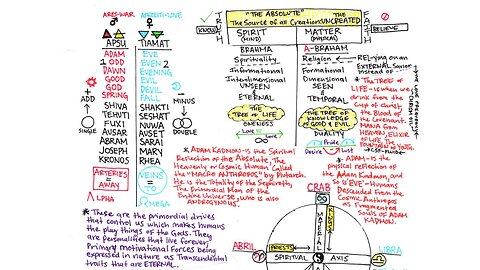 ARES=WAR
APHRODITE=LOVE
APSU TIAMAT
ADAM EVE
1 ODD EVEN 2
DAWN EVENING
GOOD EVIL
GOD DEVIL
SPRING FALL
+ ADD
- MINUS
SINGLE
DOUBLE
SHIVA SHAKTI
TEHUTI SESHAT
FUXI NUWA
AUSAR AUSET
ABRAM SARAI
JOSEPH MARI
KRONOS RHEA
ARTERIES = AWAY
VEINS = TO
ALPHA
OMEGA
* These are the primordial drives
that control us which makes humans
the play things of the Gods. They
are personalities that live forever,
Primary motivational Forces being
expressed in nature as Transcendental
traits that are ETERNAL.
"THE ABSOLUTE" THE
The Source of all Creation: UNCREATED
TRUTH
FAITH
KNOW
BELIEVE
SPIRIT
(MIND)
MATTER
(PHYSICAL)
BRAHMA
A-BRAHAM
Spirituality
Religion
Informational
Formational
Interdimensional
Dimensional
UNSEEN
SEEN
&
&
ETERNAL
TEMPORAL
THE TREE of
LIFE
THE TREE OF
KNOWLEDGE
of GOOD & EVIL
ONENESS
DUALITY
Love Love
Pride
Desire
RELying on an
EXTERNAL Savior
instead of
* The TREE of
LIFE - is when we
drink from the
Cup of Christ,
the Blood of
the Covenant.
MANA from
HEAVEN, ELIXIR
of LIFE, The
FOUNTAIN of YOUTH.
* ADAM KADMON - is the Spiritual
Reflection of the Absolute, The
Heavenly or Cosmic Human. Called
the "MACRO ANTHROPOS" by Plutarch.
He is the Totality of the Sephiroth,
The Primordial Man of the
Entire Universe, who is also
ANDROGYNOUS.
* ADAM - is the
physical reflection of
the Adam Kadmon, and
so is EVE - Humans
Descended from the
Cosmic Anthropos
as Fragmented
Souls of ADAM
KADMON.
CRAB
MATERIAL
ABRIL
PRIESTS
SPIRITUAL AXIS
LIBRA